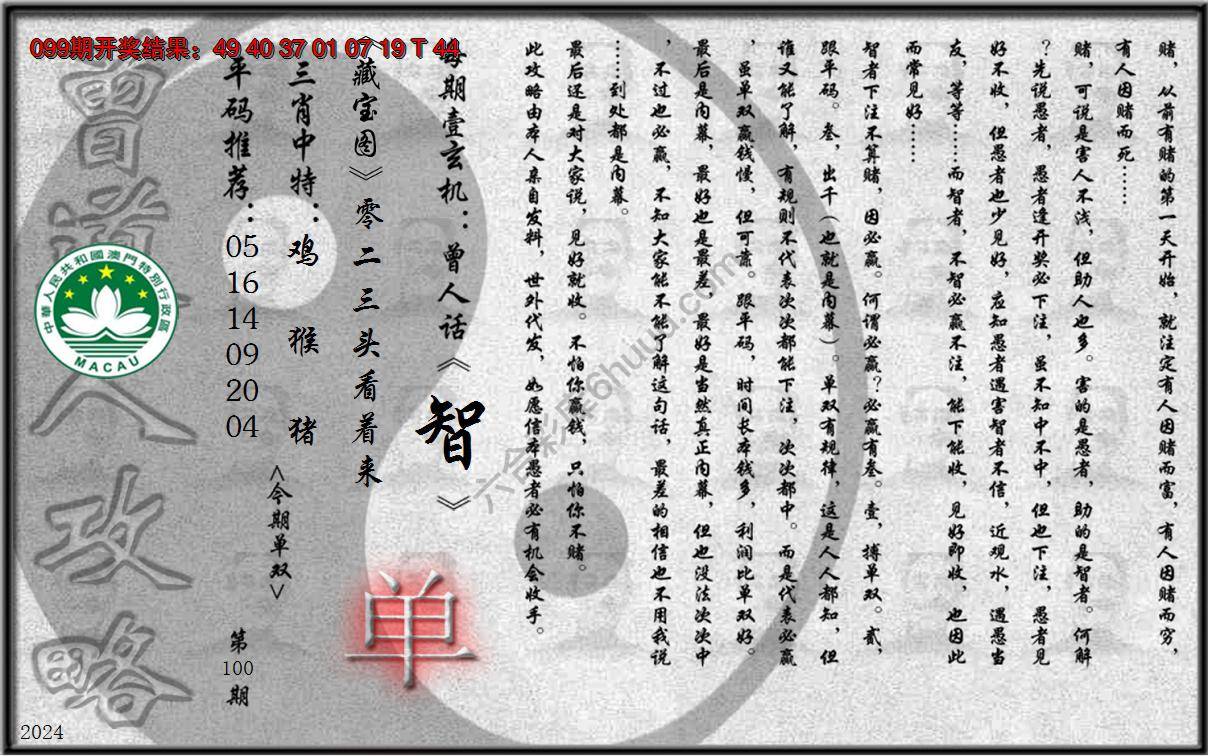 099期开奖结果：49 40 37 01 07 19 T 44
赌，从前有赌的第一天开始，就注定有人因赌而富，有人因赌而穷，
有人因赌而死……
赌，可说是害人不浅，但助人也多。害的是愚者，助的是智者。何解
？先说愚者，愚者逢开奖必下注，虽不知中不中，但也下注，愚者见
好不收，但愚者也少见好，应知愚者遇害智者不信，近观水，遇愚当
友，等等……而智者，不智必赢不注，能下能收，见好即收，也因此
而常见好……
智者下注不算赌，因必赢。何谓必赢？必赢有叁。壹，搏单双。贰，
跟平码。叁，出千（也就是内幕）。单双有规律，这是人人都知，但
谁又能了解，有规则不代表次次都能下注，次次都中。而是代表必赢
，虽单双赢钱慢，但可靠。跟平码，时间长本钱多，利润比单双好。
最后是内幕，最好也是最差，最好是当然真正内幕，但也没法次次中
，不过也必赢，不知大家能不能了解这句话，最差的相信也不用我说
……到处都是内幕。
最后还是对大家说，见好就收。不怕你赢钱，只怕你不赌。
此攻略由本人亲自发料，世外代发，如愿信本愚者必有机会收手。
每期壹玄机：曾人话《智》
《藏宝图》零二三头看着来
三肖中特：鸡 猴 猪
平码推荐：05 16 14 09 20 04
<今期单双>
单
第100期
曾道人攻略
中華人民共和國澳門特別行政區
MACAU
六合彩库6huuu.com
2024